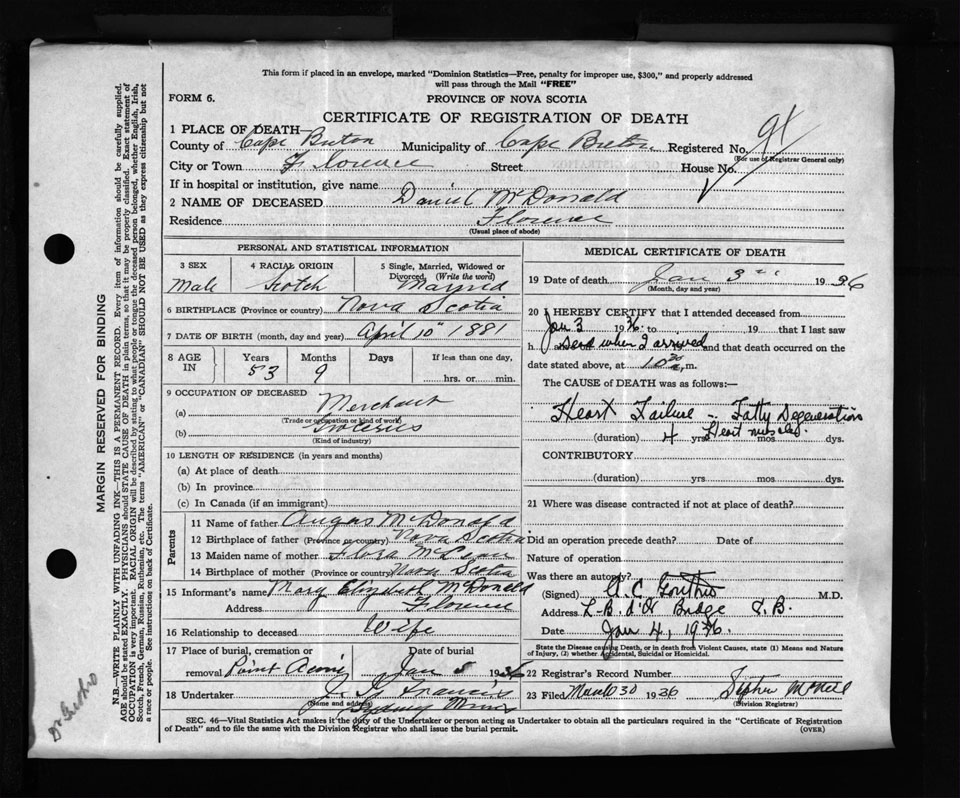 This form if placed in an envelope, marked "Dominion Statistics—Free, penalty for improper use, $300," and properly addressed
will pass through the Mail "FREE"
FORM 6.
PROVINCE OF NOVA SCOTIA
CERTIFICATE OF REGISTRATION OF DEATH
1 PLACE OF DEATH—
County of Cape Breton Municipality of Cape Breton Registered No. 91
(For use of Registrar General only)
City or Town Florence Street House No.
If in hospital or institution, give name
2 NAME OF DECEASED Daniel McDonald
Residence Florence
(Usual place of abode)
PERSONAL AND STATISTICAL INFORMATION
3 SEX 4 RACIAL ORIGIN 5 Single, Married, Widowed or
Divorced (Write the word)
Male Scotch Married
6 BIRTHPLACE (Province or country) Nova Scotia
7 DATE OF BIRTH (month, day and year) April 10" 1881
8 AGE IN Years Months Days If less than one day,
53 9 hrs. or min.
9 OCCUPATION OF DECEASED
(a) Merchant
(Trade or occupation or kind of work)
(b) Groceries
(Kind of industry)
10 LENGTH OF RESIDENCE (in years and months)
(a) At place of death
(b) In province
(c) In Canada (if an immigrant)
Parents
11 Name of father Angus McDonald
12 Birthplace of father (Province or country) Nova Scotia
13 Maiden name of mother Flora McLean
14 Birthplace of mother (Province or country) Nova Scotia
15 Informant's name Mary Elizabeth McDonald
Address Florence
16 Relationship to deceased Wife
17 Place of burial, cremation or Date of burial
removal Point Aconi Jan 5 1936
18 Undertaker J. Francis
(Name and address)
Sydney Mines
MEDICAL CERTIFICATE OF DEATH
19 Date of death Jan 3rd 1936
(Month, day and year)
20 I HEREBY CERTIFY that I attended deceased from
Jan 3 1936 to 19 that I last saw
h dead when I arrived and that death occurred on the
date stated above, at 10 m.
The CAUSE OF DEATH was as follows:
Heart Failure – Fatty Degeneration
Heart muscles.
(duration) 4 yrs. mos. dys.
CONTRIBUTORY
(duration) yrs. mos. dys.
21 Where was disease contracted if not at place of death?
Did an operation precede death? Date of
Nature of operation
Was there an autopsy?
(Signed) A.C. Gouthro M.D.
Address L-B. d'Or Bridge C.B.
Date Jan 4, 1936.
State the Disease causing Death, or in death from Violent Causes, state (1) Means and Nature
of Injury, (2) whether Accidental, Suicidal or Homicidal.
22 Registrar's Record Number
23 Filed March 30 1936 McNeil
(Division Registrar)
SEC. 46—Vital Statistics Act makes it the duty of the Undertaker or person acting as Undertaker to obtain all the particulars required in the "Certificate of Registration
of Death" and to file the same with the Division Registrar who shall issue the burial permit. (OVER)
MARGIN RESERVED FOR BINDING
N.B.—WRITE PLAINLY WITH UNFADING INK—THIS IS A PERMANENT RECORD. Every item of information should be carefully supplied.
AGE should be stated EXACTLY. PHYSICIANS should STATE CAUSE OF DEATH in plain terms, so that it may be properly classified. Exact statement of
OCCUPATION is very important. RACIAL ORIGIN will be described by stating to what people or tongue the deceased person belonged, whether English, Irish,
Scotch, French, German, Russian, Ruthenian, etc. The terms "AMERICAN" or "CANADIAN" SHOULD NOT BE USED as they express citizenship but not
a race or people. See instructions on back of Certificate.
Dr Guthro